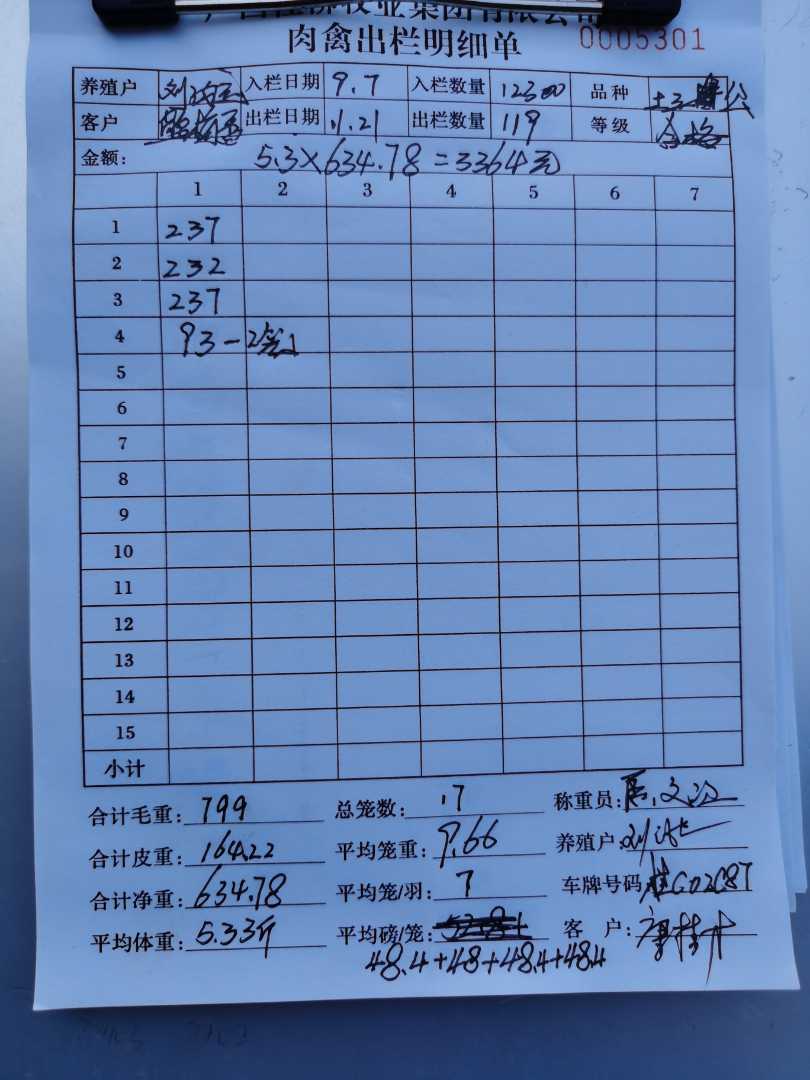 牧业集团有限公司
肉禽出栏明细单 0005301
养殖户 入栏日期 9.7 入栏数量 12300 品种 公
客户 出栏日期 11.21 出栏数量 119 等级 合格
金额: 5.3×634.78=3364元
1 2 3 4 5 6 7
1 237
2 232
3 237
4 93-2笼
5
6
7
8
9
10
11
12
13
14
15
小计
合计毛重: 799 总笼数: 17 称重员:
合计皮重: 164.22 平均笼重: 9.66 养殖户: 刘
合计净重: 634.78 平均笼/羽: 7 车牌号码 桂G02C87
平均体重: 5.33斤 平均磅/笼: 客 户:
48.4+48+48.4+48.4